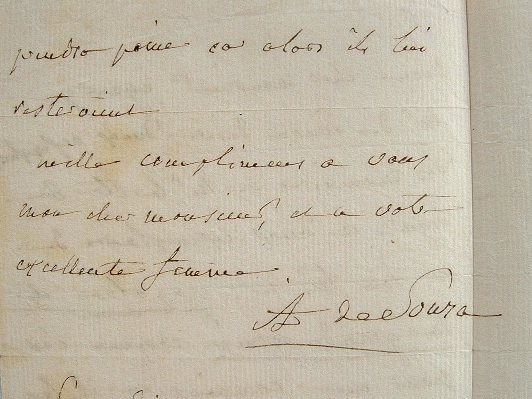 peine car alors ils lui
resteroient
mille complimens a vous
mon cher monsieur, et a votre
excellente femme
A de Souza